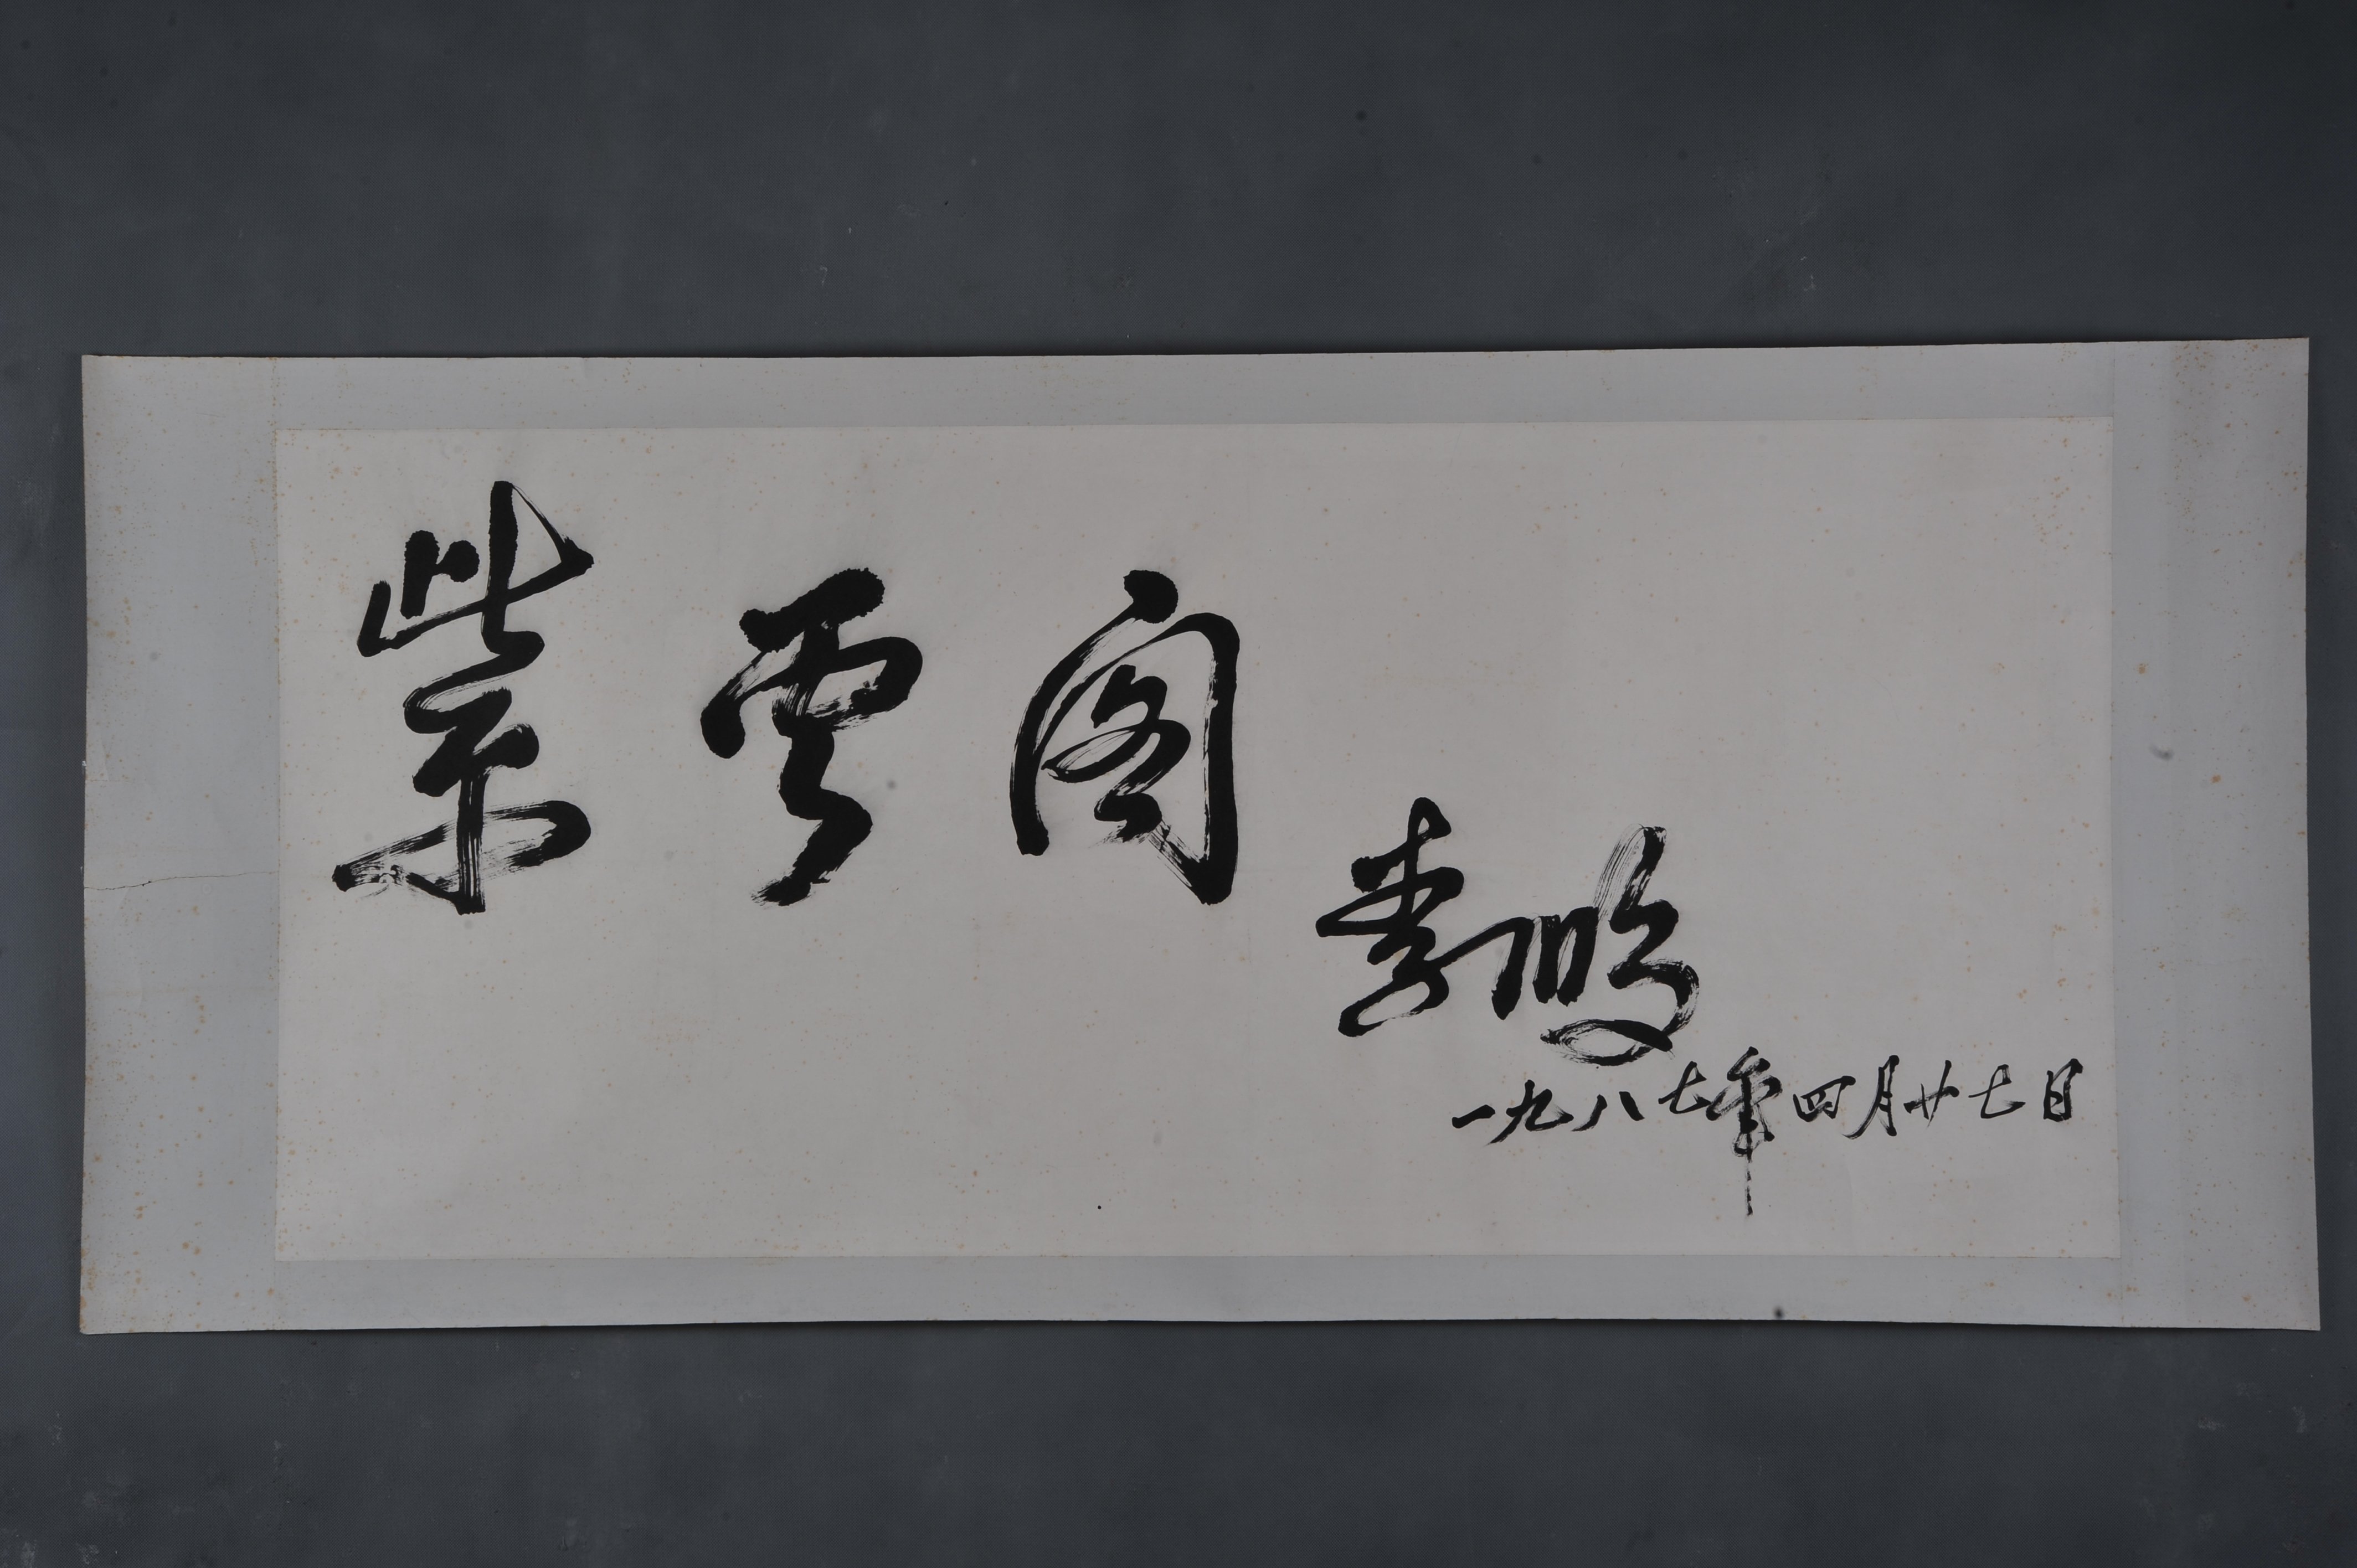 紫云阁
李鹏
一九八七年四月廿七日